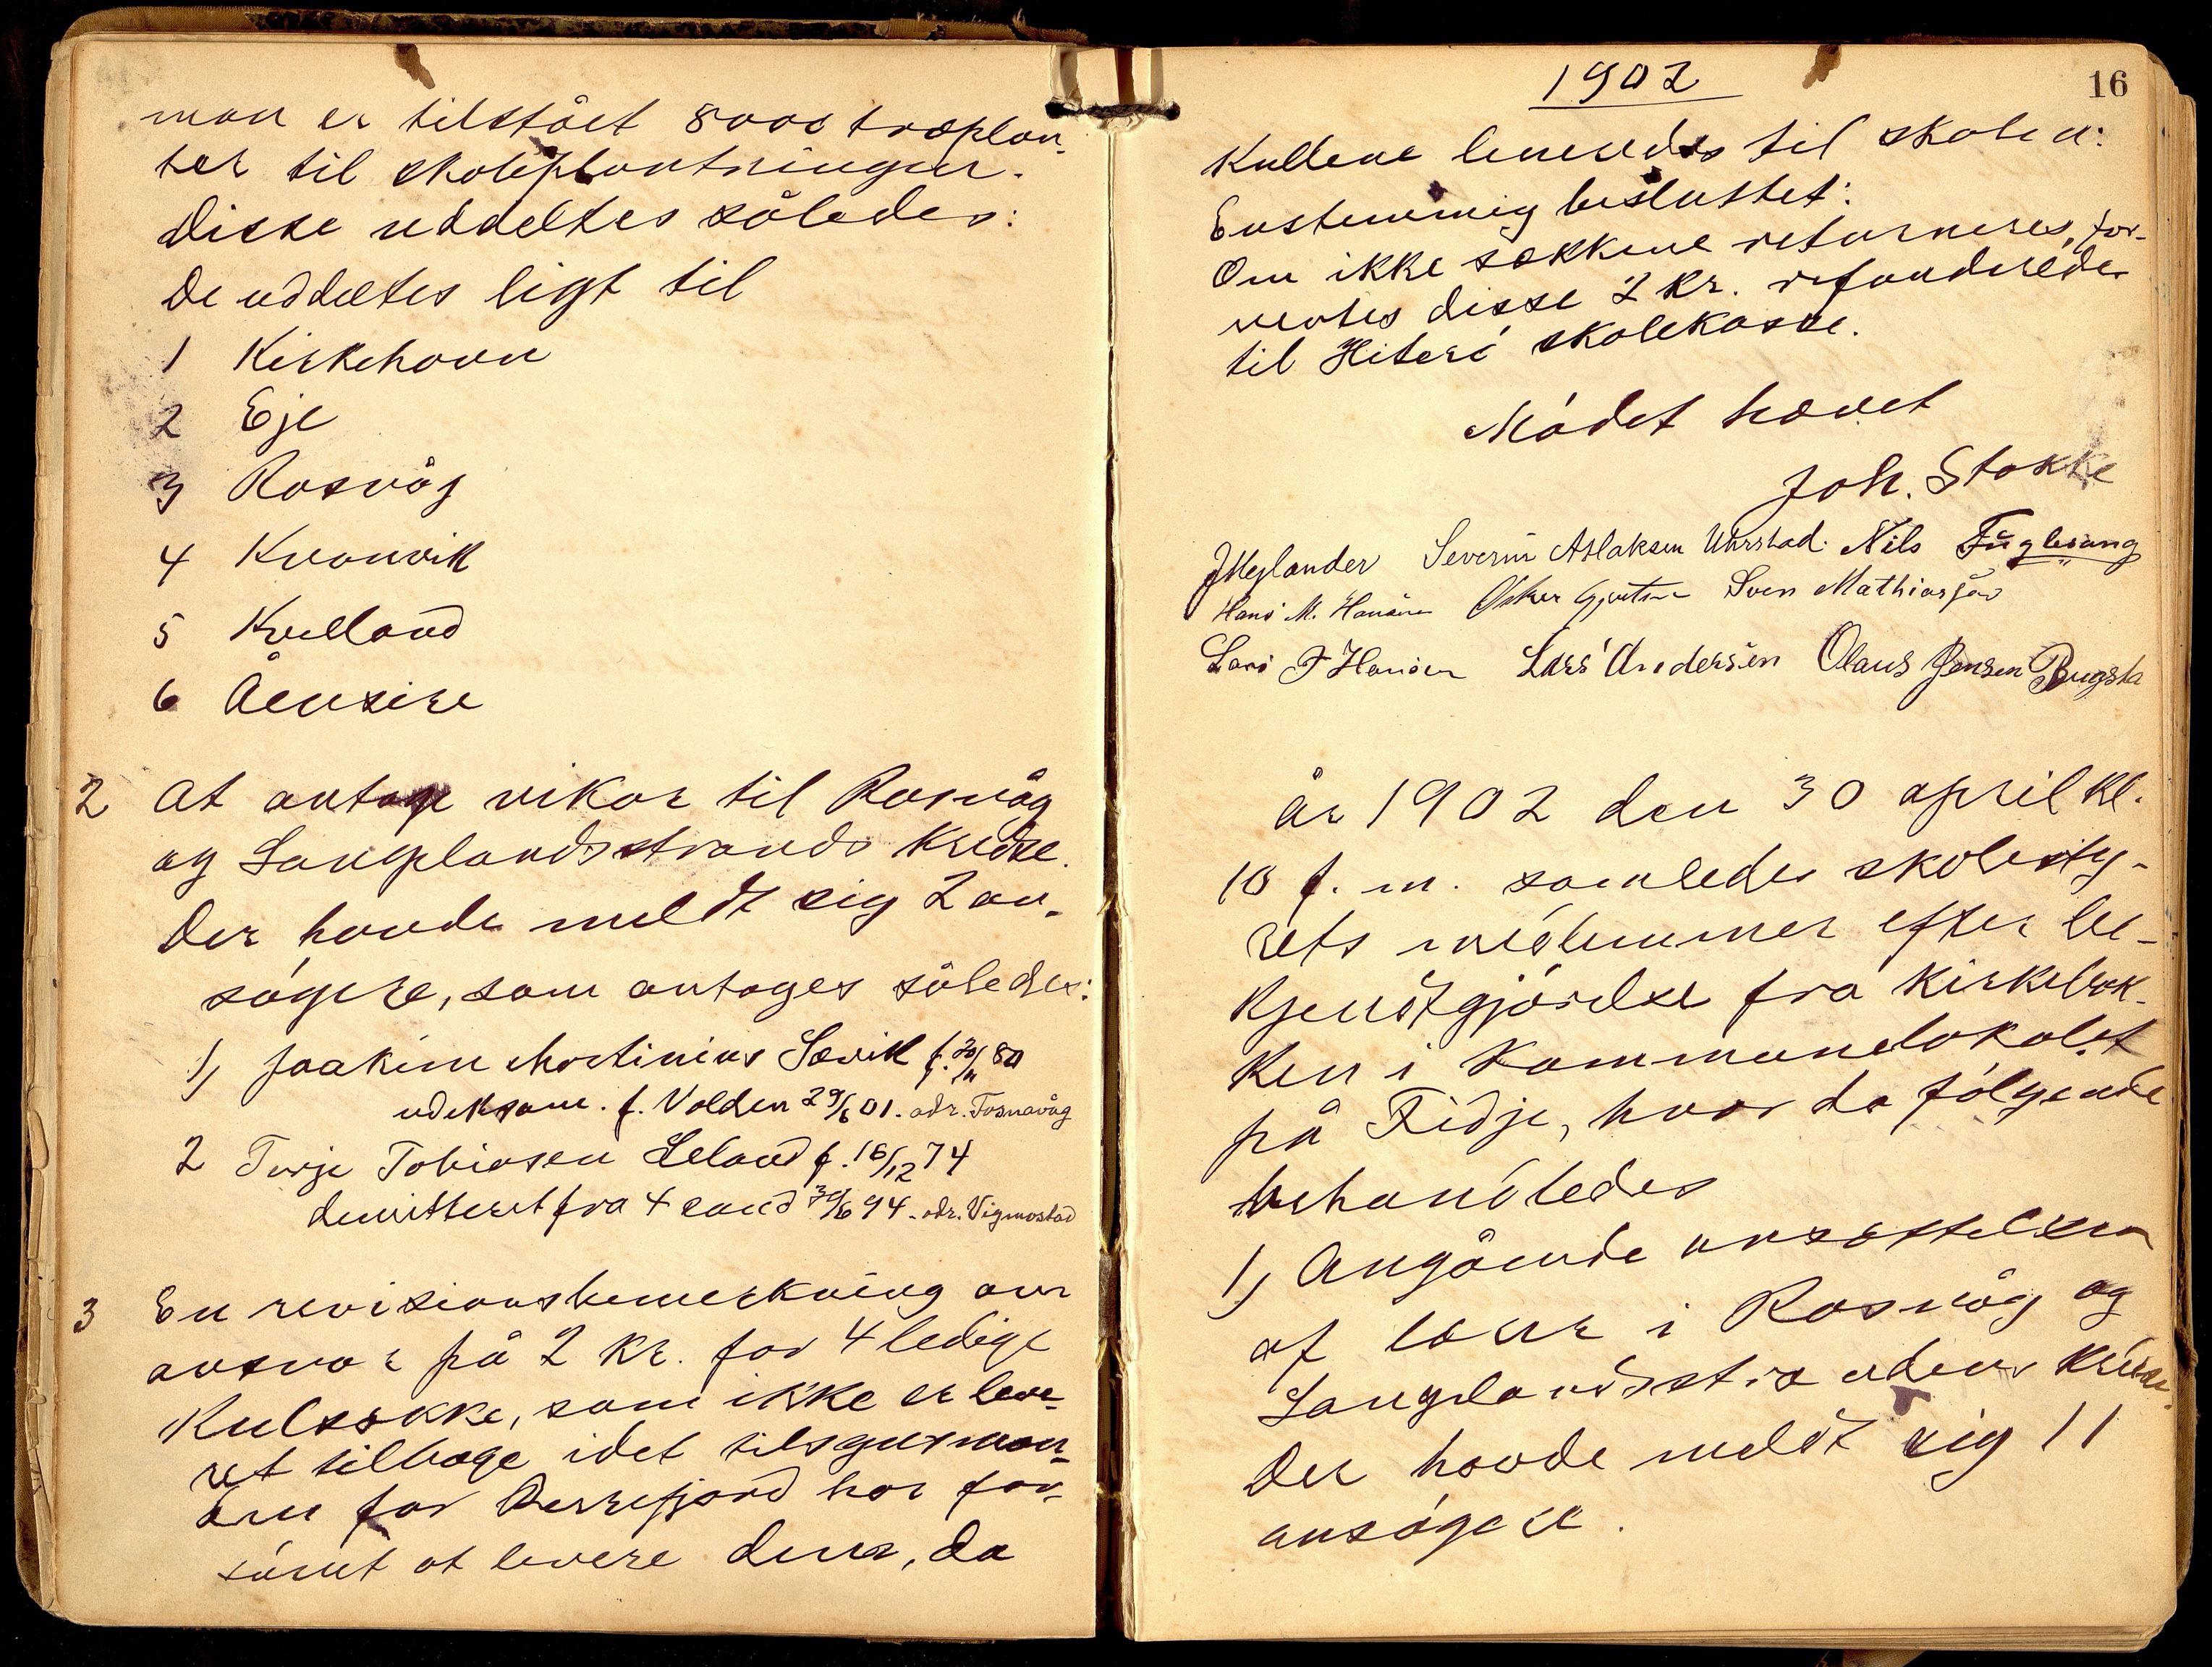 man er tilstået 8000 træplan-
ter til skoleplantninger.
Disse uddeltes således:
De uddeltes ligt til
1 Kirkehavn
2 Eje
3 Rasvåg
4 Kvanvik
5 Kvelland
6 Åensire
2 At antage vikar til Rasvåg
og Langelandsstrands kredse.
Der havde meldt sig 2 an-
søgere, som antages således:
1) Joakim Martinius Sævik f. 20/11 80
udeksam. f. Volden 29/6 01. adr. Fosnavåg
2 Terje Tobiasen Leland f. 16/12 74
demitteret fra 4 sand 30/6 94 - adr. Vigmostad
3 En revisionsbemerkning om
ansvar på 2 kr. for 4 ledige
Kulsække, som ikke er leve-
ret tilbage idet tilsynsman-
den for Berrefjord har for-
sömt at levere dem, da
1902
16
Kullene leveredes til skolen:
Enstemmig besluttet:
Om ikke sækkene returneres, for-
ventes disse 2 kr. refunderede
til Hiterö skolekasse.
Mödet hævet
Joh. Stokke
J Meglander Severin Atlaksen Uhrstad. Nils Fuglevang
Hans M. Hansen Osker Gjertsen Sven Mathiassen
Lars F Hansen Lars Andersen Olaus Jensen Bugsta
År 1902 den 30 april kl.
10 f. m. samledes skolesty-
rets medlemmer efter be-
kjendtgjörelse fra kirkebak-
ken i Kommunelokalet
på Fidje, hvor da fölgende
behandledes
1) Angående ansættelsen
af lærer i Rasvåg og
Langelandsstrandens kredse.
Der havde meldt sig 11
ansögere.